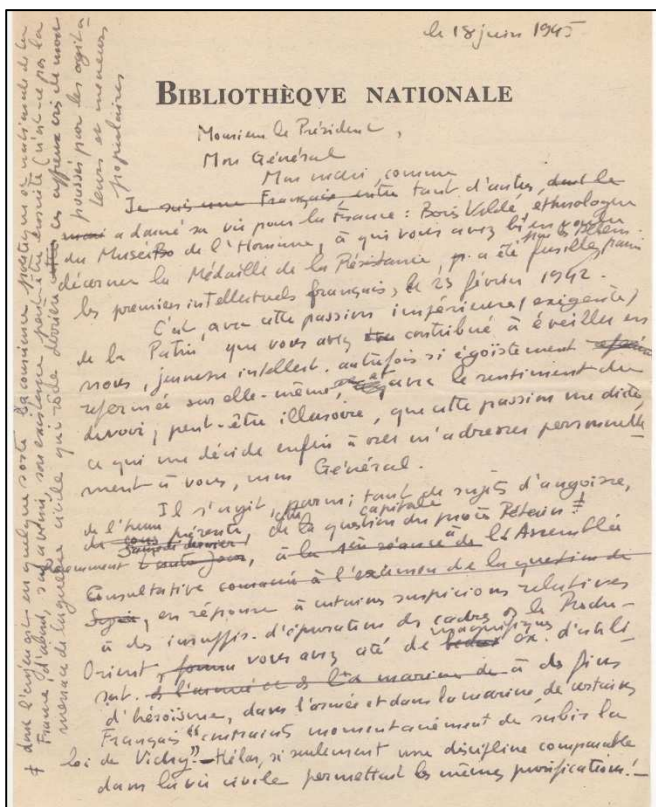 le 18 juin 1945
BIBLIOTHÈQVE NATIONALE
Monsieur le Président,
Mon Général
Mon mari, comme
Je suis une Française entre tant d'autres, dont le
mari a donné sa vie pour la France : Boris Vildé, ethnologue
du Musée de l'Homme, à qui vous avez bien voulu
décerner la Médaille de la Résistance, a été fusillé, parmi
les premiers intellectuels français, le 23 février 1942.
C'est avec cette passion impérieuse (exigente)
de la Patrie que vous avez contribué à éveiller en
nous, jeunesse intellect. autrefois si égoïstement
refermée sur elle-même, et avec le sentiment du
devoir, peut-être illusoire, que cette passion me dicte,
ce qui me décide enfin à oser m'adresser personnelle-
ment à vous, mon Général.
Il s'agit, parmi tant de sujets d'angoisse,
de l'heure présente, de la question capitale du procès Pétain ‡
Samedi dernier, à la séance de l'Assemblée
Consultative consacrée à l'examen de la question de
Syrie, en réponse à certaines suspicions relatives
à des insuffis. d'épuration des cadres de la
Orient, vous avez cité de magnifiques ex. d'utili
sat. de l'armée et de la marine de à des fins
d'héroïsme, dans l'armée et dans la marine, de certains
Français "contraints momentanément de subir la
loi de Vichy". – Hélas, si seulement une discipline comparable
dans la vie civile permettait les mêmes purifications! –
‡ dont l'enjeu est en quelque sorte la conscience politique et nationale de la
France, d'abord, son avenir, son existence peut-être ensuite (n'est-ce pas la
menace de la guerre civile qui rôde derrière ces affreux cris de mort
poussés par les agita-
teurs et meneurs
populaires